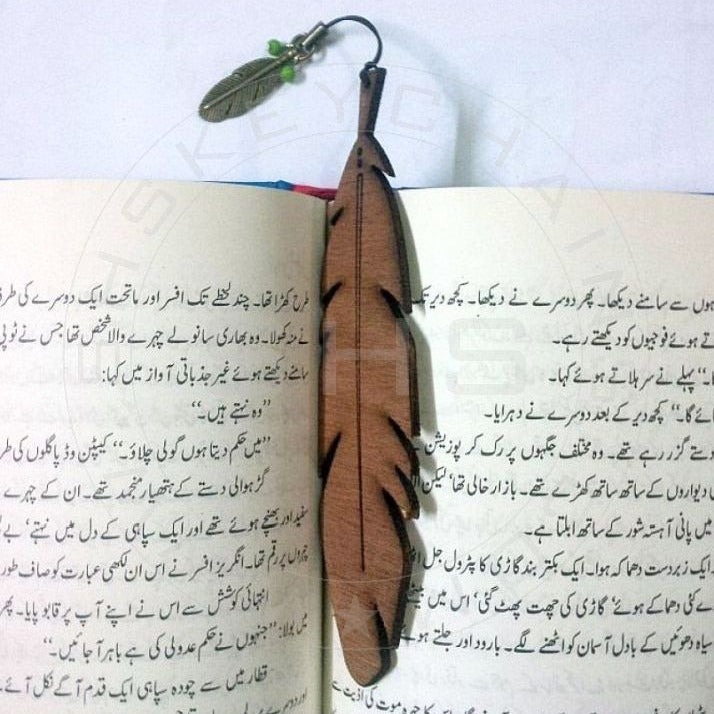 سے سامنے دیکھا۔ پھر دوسرے نے دیکھا۔ کچھ دیر تک
ہوئے فوجیوں کو دیکھتے رہے۔
پہلے نے سر ہلاتے ہوئے کہا۔
گا۔“ کچھ دیر کے بعد دوسرے نے دہرایا۔
گزر رہے تھے۔ وہ مختلف جگہوں پر رک کر پوزیشن
دیواروں کے ساتھ ساتھ کھڑے تھے۔ بازار خالی تھا‘ لیکن
میں پانی آہستہ شور کے ساتھ ابلتا ہے۔
ایک زبردست دھماکہ ہوا۔ ایک بکتر بند گاڑی کا پٹرول جل
کئی دھماکے ہوئے‘ گاڑی کی چھت پھٹ گئی‘ اس میں
سیاہ دھوئیں کے بادل آسمان کو اٹھنے لگے۔ بارود اور جلتے ہوئے
موت کی اذیت سے
طرح کھڑا تھا۔ چند لحظے تک افسر اور ماتحت ایک دوسرے کی
نے منہ کھولا۔ وہ بھاری سانولے چہرے والا شخص تھا جس نے ٹوپی
سامنے دیکھتے ہوئے غیر جذباتی آواز میں کہا:
”وہ نہتے ہیں۔“
”میں حکم دیتا ہوں گولی چلاؤ۔“ کیپٹن وڈ پاگلوں کی
گڑھوالی دستے کے ہتھیار منجمد تھے۔ ان کے چہرے
سفید اور بھنچے ہوئے تھے اور ایک سپاہی کے دل میں نہتے‘
چہروں پر رقم تھا۔ انگریز افسر نے اس ان لکھی عبارت کو صاف طور
انتہائی کوشش سے اس نے اپنے آپ پر قابو پایا۔ پھر
میں بولا: ”جنہوں نے حکم عدولی کی ہے باہر آ جائیں۔“
قطار میں سے چودہ سپاہی ایک قدم آگے نکل آئے۔
HSKEYCHAINS
HS